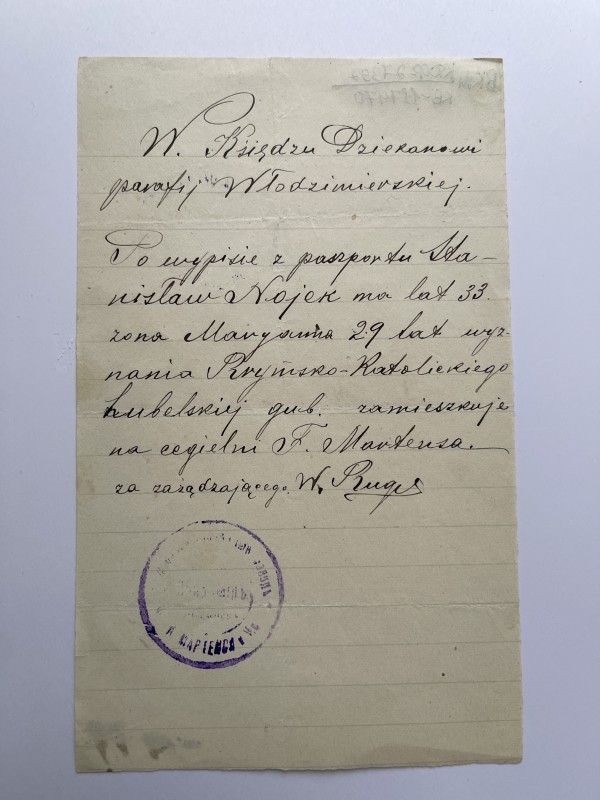 W. Księdzu Dziekanowi
parafij Włodzimierskiej.
Po wypisie z paszportu Sta-
nisław Nojek ma lat 33.
żona Maryanna 29 lat wyz-
nania Rzymsko-Katolickiego
Lubelskiej gub. zamieszkuje
na cegielni F. Martensa.
za zarządzającego W.
МАРТЕНСА